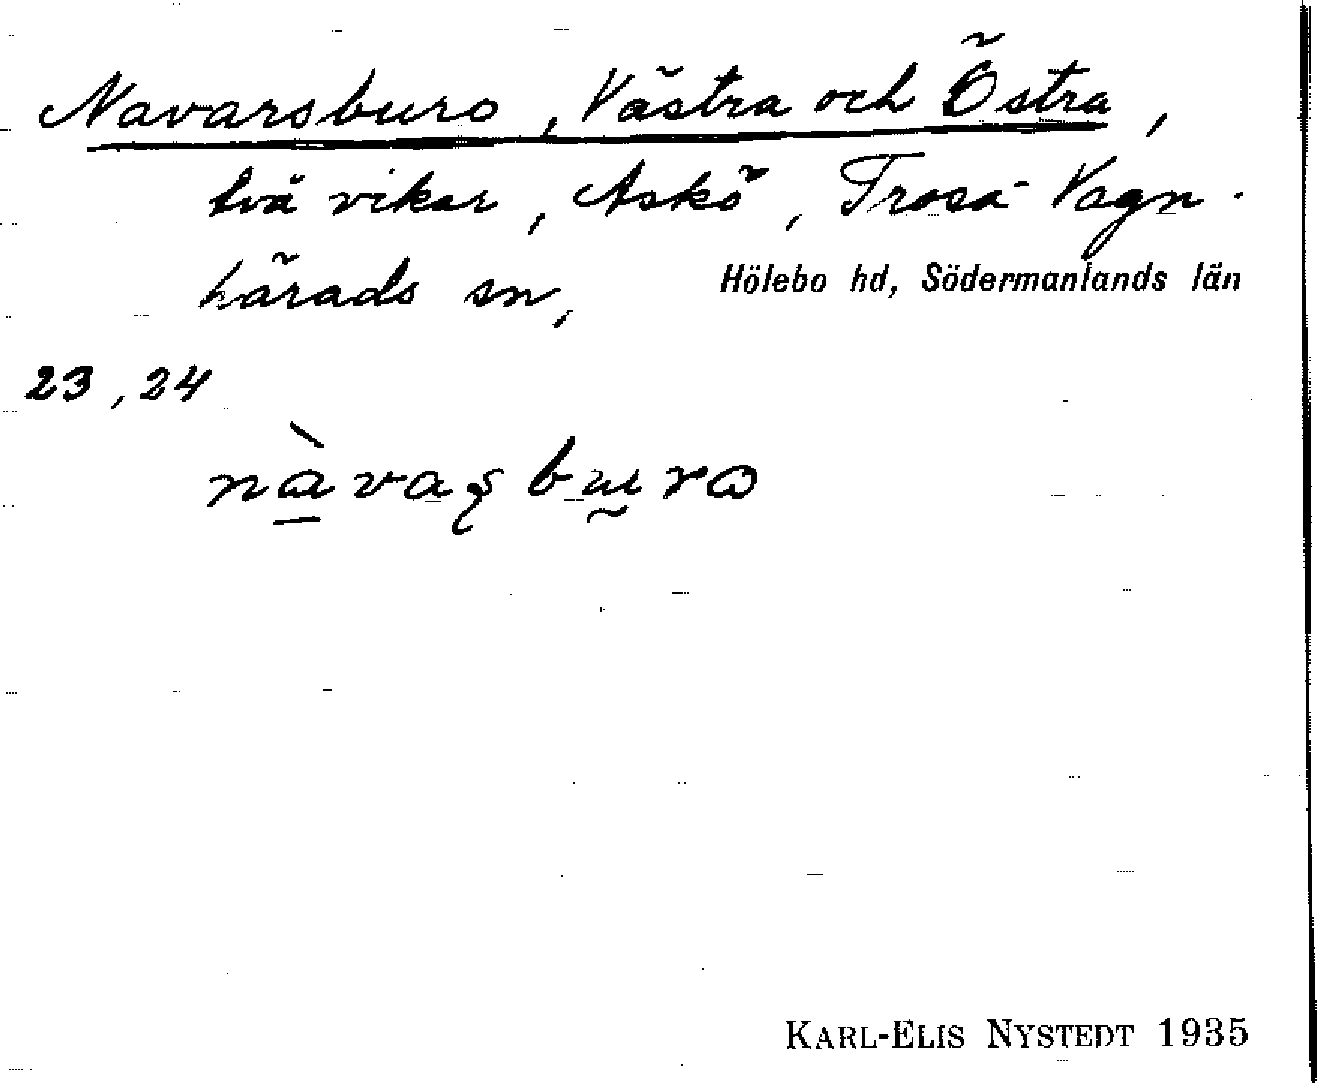 Navarsburo, Västra och Östra,
två vikar, Askö, Trosa-Vagn-
härads sn, Hölebo hd, Södermanlands län
23, 24
nàvaʂburɷ
KARL-ELIS NYSTEDT 1935